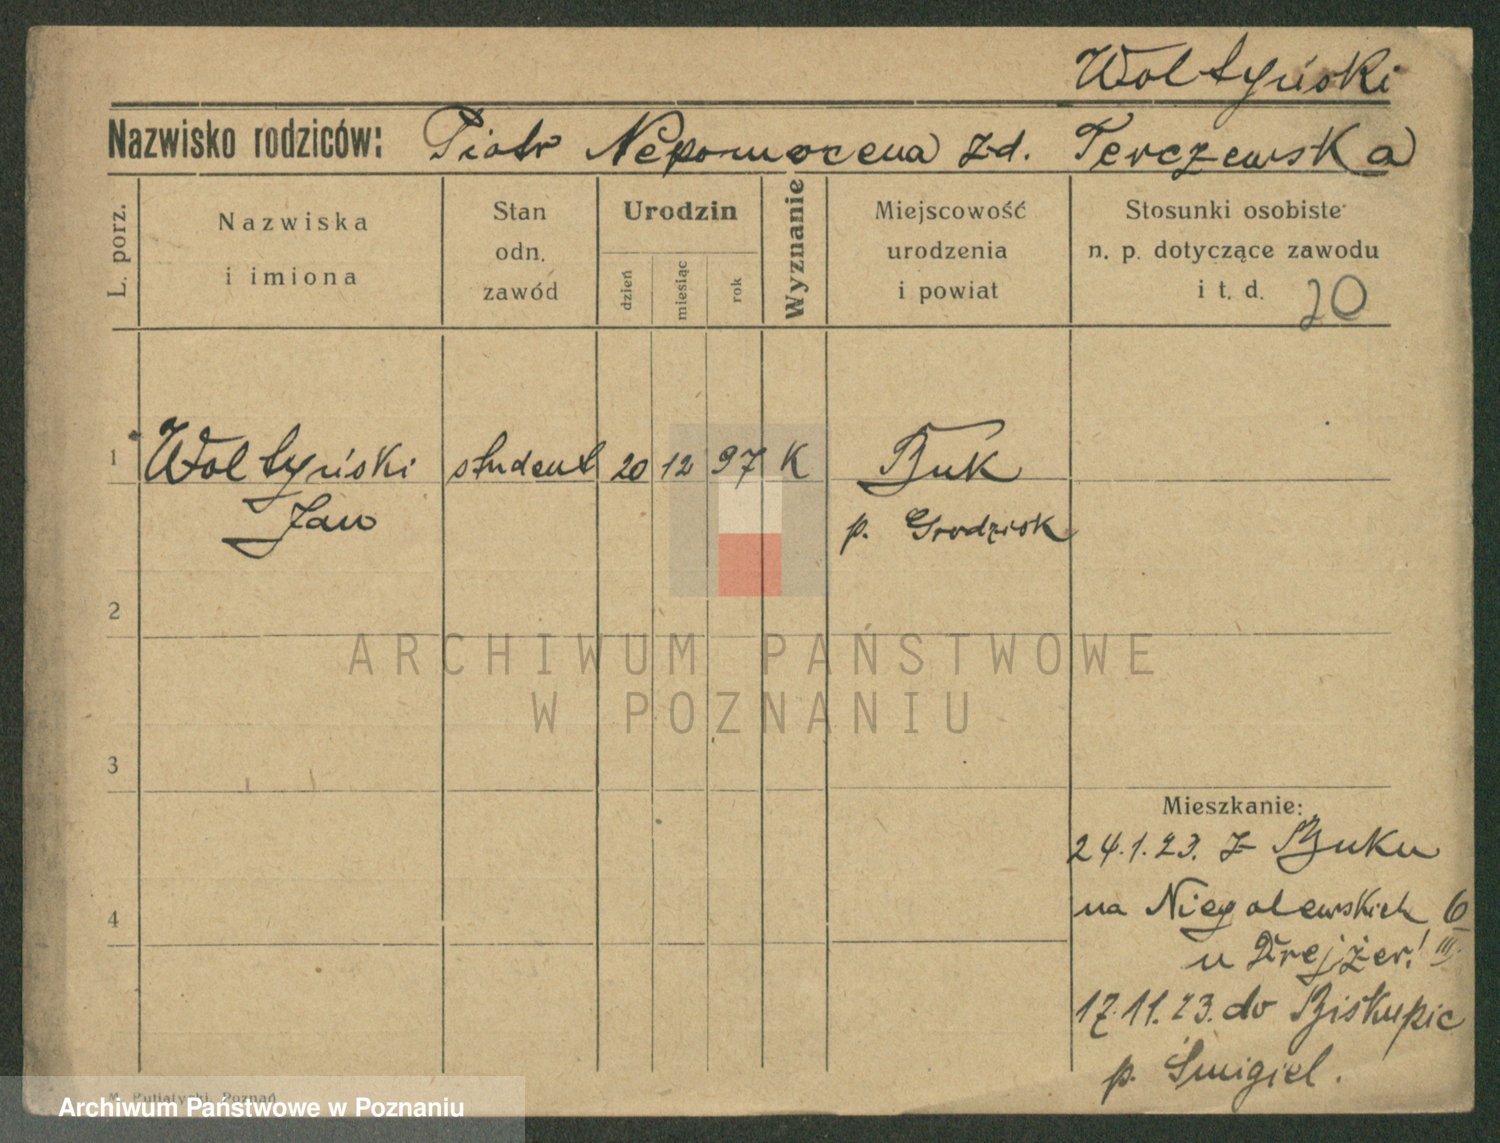 Woltyński
Nazwisko rodziców: Piotr Nepomocena zd. Terczewska
L. porz.
Nazwiska
i imiona
Stan
odn.
zawód
Urodzin
dzień
miesiąc
rok
Wyznanie
Miejscowość
urodzenia
i powiat
Stosunki osobiste
n. p. dotyczące zawodu
i t. d. 20
1 Woltyński student 20 12 97 K Buk
Jan p. Grodzisk
2
ARCHIWUM PAŃSTWOWE
W POZNANIU
3
Mieszkanie:
24.1.23. z Buku
na Niegolewskich 6
u Drejżer! III.
4
17.11.23. do Biskupic
p. Śmigiel.
Poznań
Archiwum Państwowe w Poznaniu